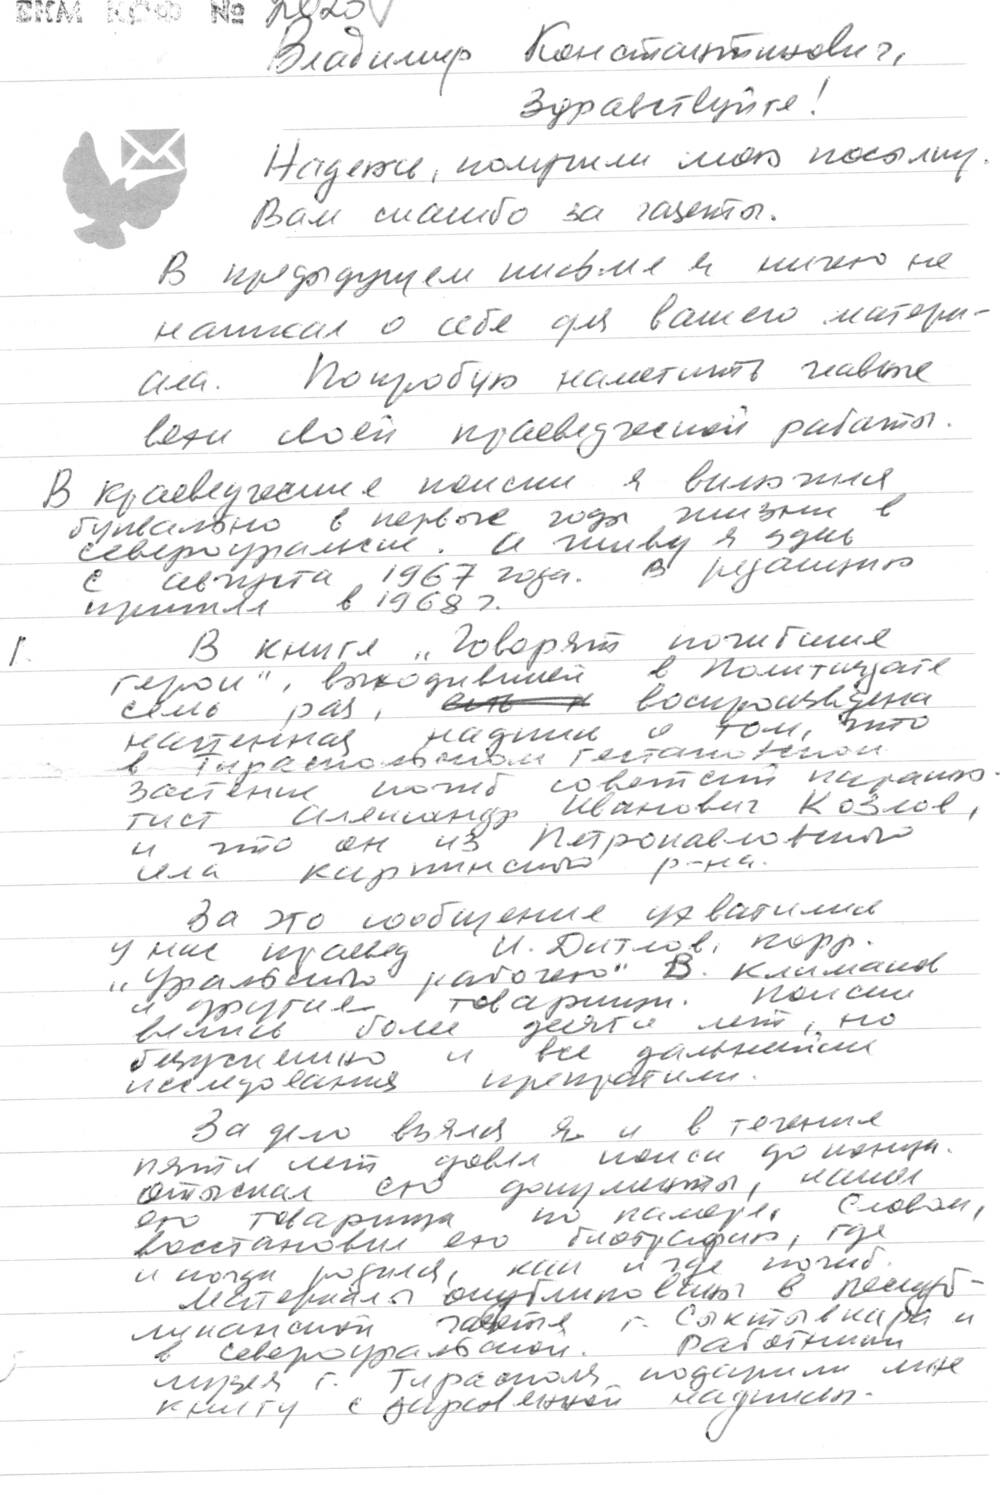 ВКМ КОФ №
Владимир Константинович,
Здравствуйте!
Надеюсь, получили мою посылку.
Вам спасибо за газеты.
В предыдущем письме я ничего не
написал о себе для вашего матери-
ала. Попробую наметить главные
вехи своей краеведческой работы.
В краеведческие поиски я включился
буквально в первые годы жизни в
Североуральске. А живу я здесь
с августа 1967 года. В редакцию
пришел в 1968 г.
1. В книге „Говорят погибшие
герои", выходившей в Политиздате
семь раз, воспроизведена
настенная надпись о том, что
в Тираспольском гестаповском
застенке погиб советский парашю-
тист Александр Иванович Козлов,
и что он из Петропавловского
села Карпинского р-на.
За это сообщение ухватились
у нас краевед И. Дитлов, корр.
„Уральского рабочего" В. Климанов
и другие товарищи. Поиски
велись более десяти лет, но
безуспешно и все дальнейшие
исследования прекратили.
За дело взялся я и в течение
пяти лет довел поиск до конца.
Отыскал его документы, нашел
его товарища по камере. Словом,
восстановил его биографию, где
и когда родился, как и где погиб.
Материалы опубликованы в респуб-
ликанской газете г. Сыктывкара и
в североуральской. Работники
музея г. Тирасполя подарили мне
книгу с дарственной надписью.